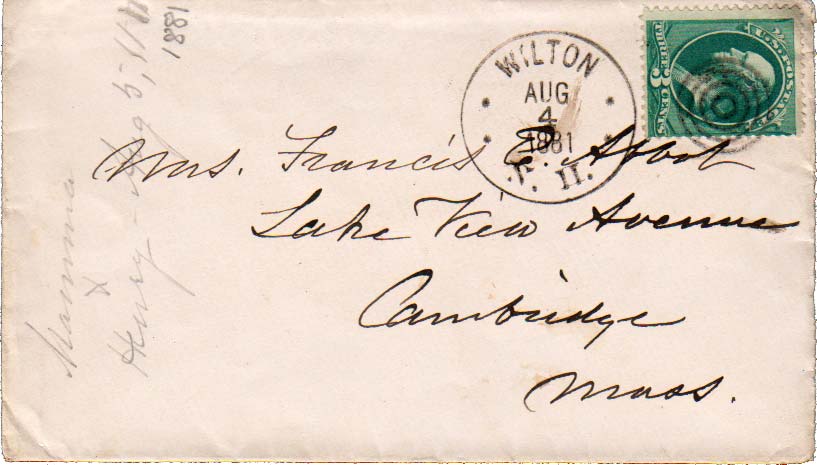 WILTON
AUG
4
1881
N. H.
U.S. POSTAGE
THREE 3 CENTS
Mrs. Francis E. Abbot
Lake View Avenue
Cambridge
Mass.
Mamma
&
Henry - Aug 5,
1881